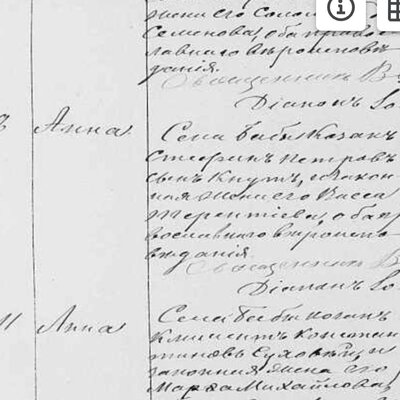 жена его Соломо
Семенова, оба правос
лавнаго вѣроисповѣ
данія.
Священникъ В
Діаконъ
Анна
Села Бабы козакъ
Стефанъ Петровъ
сынъ Кнутъ, и закон
ная жена его Васса
Терентіева, оба пр
вославнаго вѣроиспо
вѣданія.
Священникъ В
Діаконъ
Анна
Села Бабы козакъ
Климентъ Констан
тиновъ Суховѣй, и
законная жена его
Марѳа Михайлова,